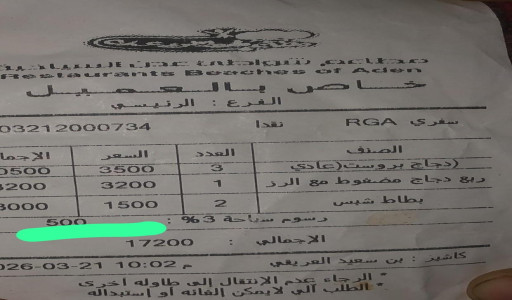 مطاعم شواطئ عدن السياحية
Restaurants Beaches of Aden
خاص بالعميل
الفرع : الرئيسي
سفري RGA نقدا 03212000734
الصنف العدد السعر الإجما
(دجاج بروست(عادي 3 3500 0500
ربع دجاج مضغوط مع الرز 1 3200 3200
بطاط شبس 2 1500 3000
رسوم سياحة 3% : 500
الإجمالي : 17200
كاشير : بن سعيد العريقي 026-03-21 10:02 م
* الرجاء عدم الانتقال إلى طاوله أخرى
* الطلب الي لايمكن إلغائه أو إستبداله